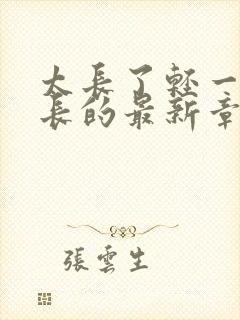 太長了輕一
長的最新章
張雲生